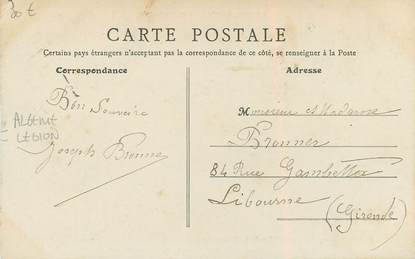 30 €
CARTE POSTALE
Certains pays étrangers n'acceptant pas la correspondance de ce côté, se renseigner à la Poste
Correspondance
Bon Souvenir
ALGERIE
LEGION
Joseph Bronner
Adresse
Monsieur et Madame
Bronner
84 Rue Gambetta
Libourne
(Gironde)